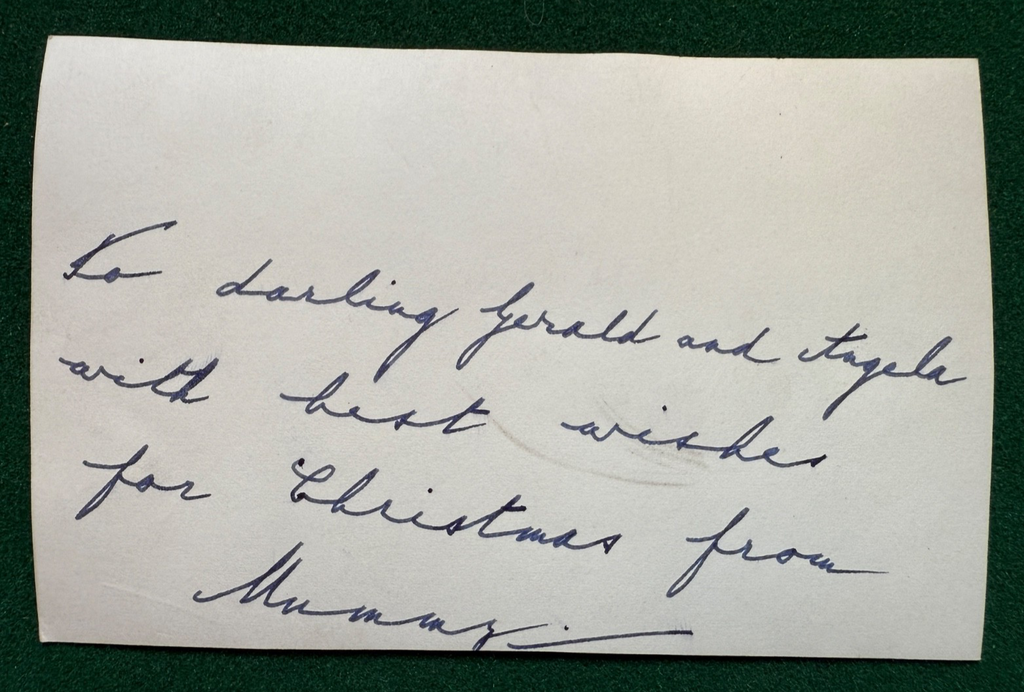 To darling Gerald and Angela
with best wishes
for Christmas from
Mummy.